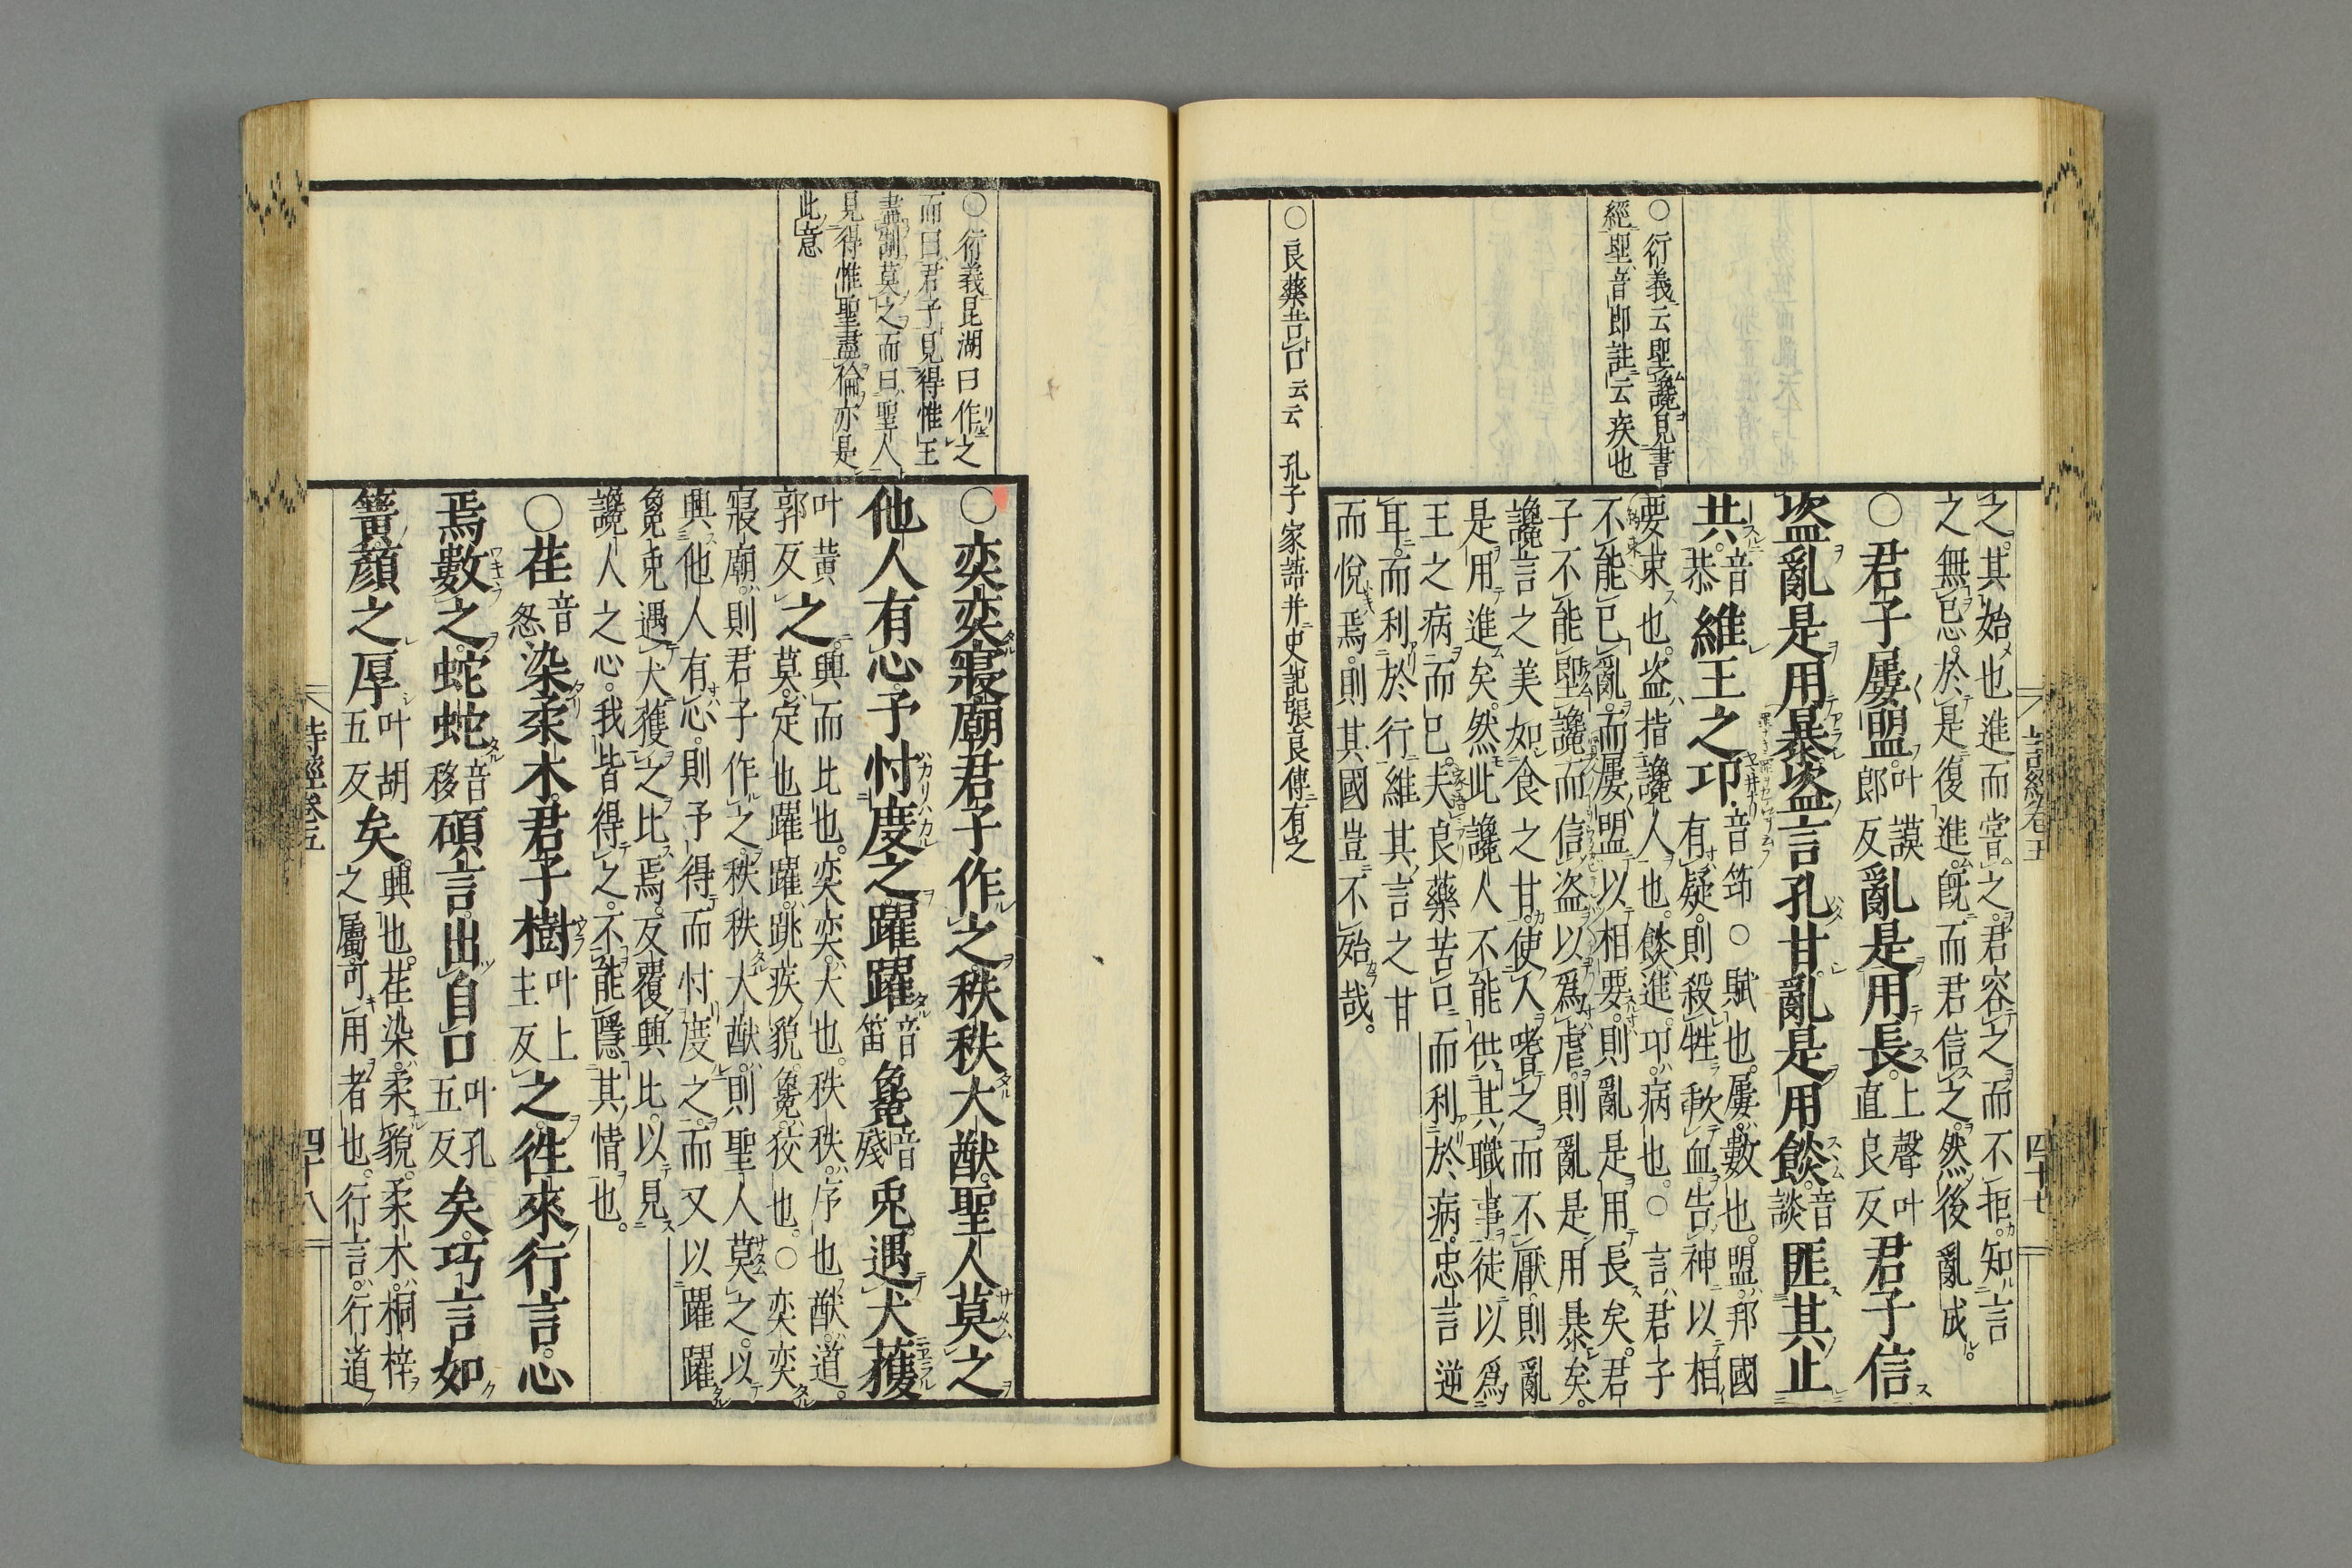 之其始也進而嘗之君容之而不拒知言
之無忌於是復進旣而君信之然後亂成
○君子屢盟叶謨郎反亂是用長上聲叶直良反君子信
盜亂是用暴盜言孔甘亂是用餤音談匪其止
共音恭維王之邛音筇○賦也屢數也盟邦國有疑則殺牲歃血告神以相
要束也盜指讒人也餤進邛病也○言君子
不能已亂而屢盟以相要則亂是用長矣君
子不能堲讒而信盜以爲虐則亂是用暴矣
讒言之美如食之甘使人嗜之而不厭則亂
是用進矣然此讒人不能供其職事徒以爲
王之病而已夫良藥苦口而利於病忠言逆
耳而利於行維其言之甘
而悅焉則其國豈不殆哉
○衍義云堲讒見書
經堲音即註云疾也
○良藥苦口云云 孔子家語并史記張良傳有之
詩經卷五 四十七
○奕奕寢廟君子作之秩秩大猷聖人莫之
他人有心予忖度之躍躍音笛毚音殘兎遇犬獲
叶黃郭反之興而比也奕奕大也秩秩序也猷道
莫定也躍躍跳疾貌毚狡也○奕奕
寢廟則君子作之秩秩大猷則聖人莫之以
興他人有心則予得而忖度之而又以躍躍
毚兎遇犬獲之比焉反覆興比以見
讒人之心我皆得之不能隱其情也
○荏音稔染柔木君子樹叶上主反之徃來行言心
焉數之蛇蛇音移碩言出自口叶孔五反矣巧言如
簧顏之厚叶胡五反矣興也荏染柔貌柔木桐梓
之屬可用者也行言行道
○衍義昆湖曰作之
而曰君子見得惟王
盡制莫之而曰聖人
見得惟聖盡倫亦是
此意
詩經卷五 四十八